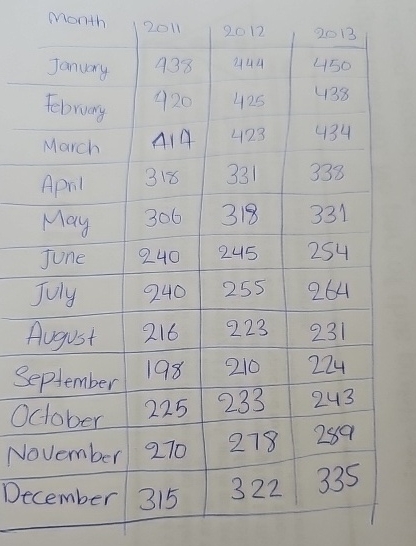 Month 2011 2012 2013
January 438 444 450
February 420 425 438
March 414 423 434
April 318 331 338
May 306 318 331
June 240 245 254
July 240 255 264
August 216 223 231
September 198 210 224
October 225 233 243
November 270 278 289
December 315 322 335